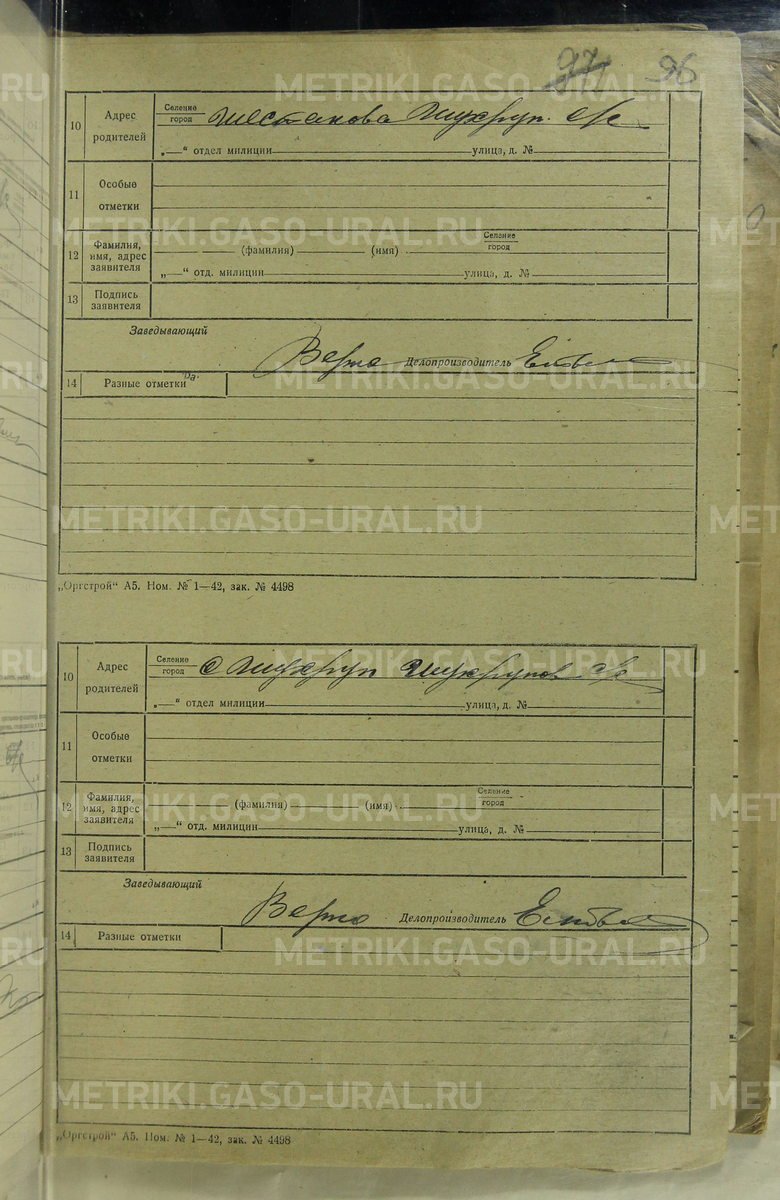 97 96
10 Адрес родителей Селение город Шестакова Шухруп. с/с
„—“ отдел милиции улица, д. №
11 Особые отметки
12 Фамилия, имя, адрес заявителя (фамилия) (имя) Селение город
„—“ отд. милиции улица, д. №
13 Подпись заявителя
Заведывающий
Верно Делопроизводитель
14 Разные отметки
„Оргстрой“ А5. Ном. № 1—42, зак. № 4498
10 Адрес родителей Селение город с Шухруп Шухрупов с/с
„—“ отдел милиции улица, д. №
11 Особые отметки
12 Фамилия, имя, адрес заявителя (фамилия) (имя) Селение город
„—“ отд. милиции улица, д. №
13 Подпись заявителя
Заведывающий
Верно Делопроизводитель
14 Разные отметки
„Оргстрой“ А5. Ном. № 1—42, зак. № 4498
METRIKI.GASO-URAL.RU